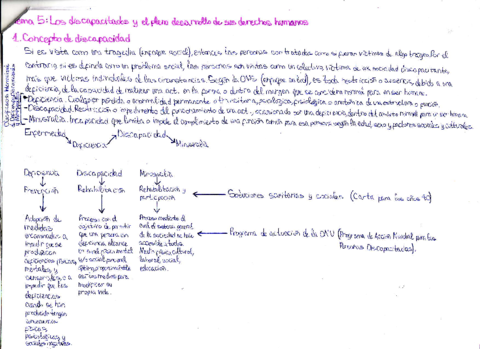 Tema 5: Los discapacitados y el pleno desarrollo de sus derechos humanos
1. Concepto de discapacidad
Si es vista como una tragedia (enfoque social), entonces las personas son tratadas como si fueran víctimas de algo trágico. Por el
contrario si es definida como un problema social, las personas son vistas como un colectivo víctima de una sociedad
más que víctimas individuales de las circunstancias. Según la OMS es toda restricción o ausencia, debida a una
deficiencia, de la capacidad de realizar una act. en la forma o dentro del margen que se considera normal para un ser humano.
- Deficiencia. Cualquier pérdida o anormalidad permanente o transitoria, psicológica, fisiológica o anatómica de una estructura o función.
- Discapacidad. Restricción o impedimento del funcionamiento de una act., ocasionado por una deficiencia, dentro del ámbito normal para un ser humano
- Minusvalía. Incapacidad que limita o impide el cumplimiento de una función normal para esa persona según la edad, sexo y factores sociales y culturales.
Enfermedad Discapacidad
Deficiencia Minusvalía
Deficiencia Discapacidad Minusvalía
Prevención Rehabilitación Rehabilitación y participación
Soluciones sanitarias y sociales (Carta para los años 80)
Programa de actuación de la ONU (Programa de Acción Mundial para las
Personas Discapacitadas).
Adopción de
medidas
encaminadas a
impedir que se
produzcan
deficiencias físicas,
mentales y
sensoriales o a
impedir que las
deficiencias
cuando se han
producido tengan
consecuencias
físicas,
psicológicas y
sociales negativas.
Proceso con el
objetivo de permitir
que una persona con
deficiencia alcance
un nivel físico, mental
y/o social funcional
óptimo, proporcionándole
así los medios para
modificar su
propia vida.
Proceso mediante el
cual el sistema general
de la sociedad se hace
accesible a todos.
Medio físico, cultural,
laboral, social,
educación.